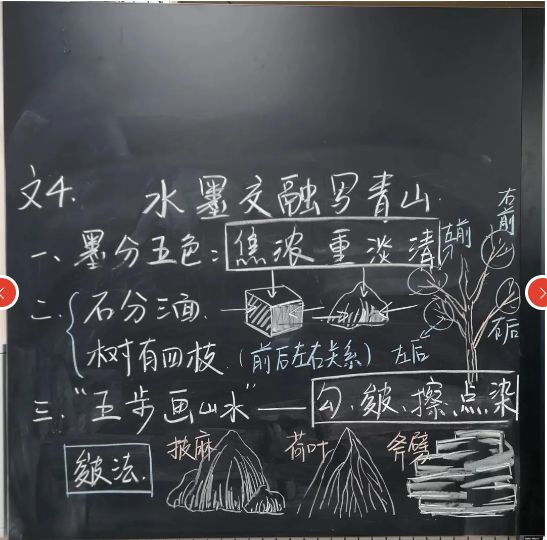 文4. 水墨交融写青山.
一、墨分五色：焦浓重淡清
二.{石分三面.
树有四枝.（前后左右关系）
左前
右前
左后
右后
三.“五步画山水”——勾、皴、擦点染
皴法.
披麻
荷叶
斧劈